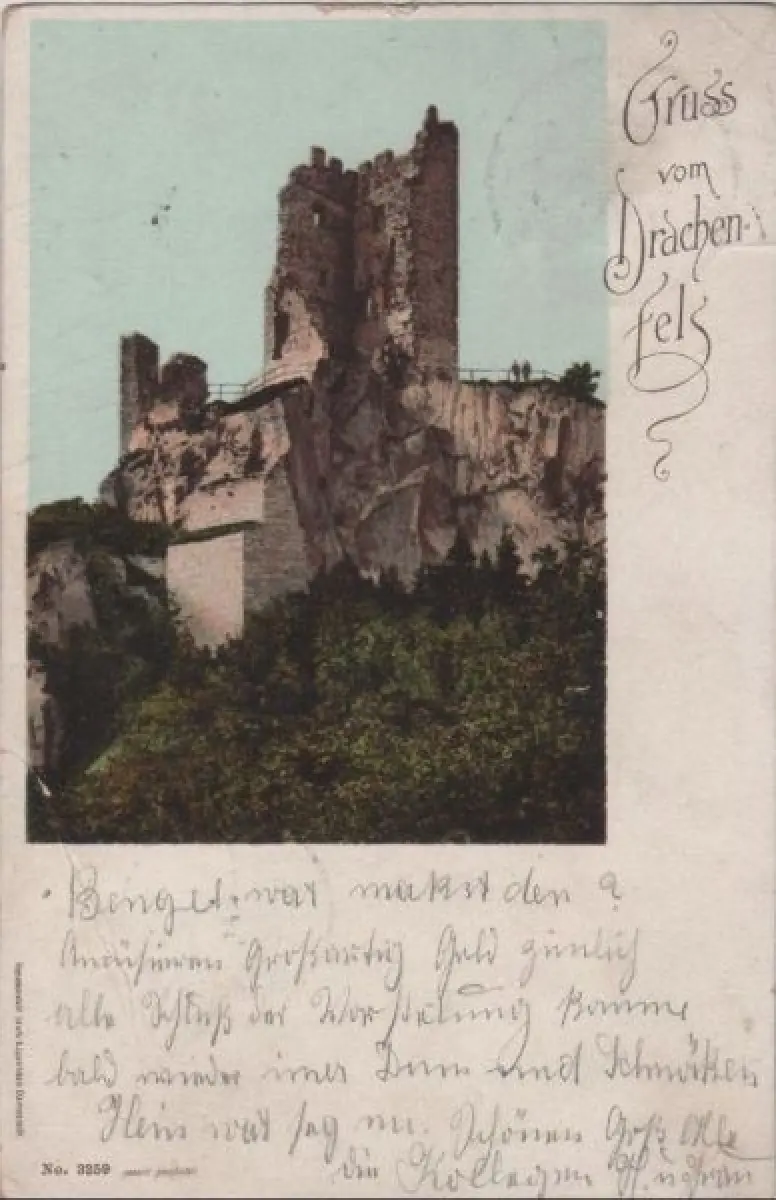 Gruss
vom
Drachen-
fels
Bengel: wat makst den ?
Amüsieren Großartig Geld zimlich
alle Schluß der Vorstelung komme
bald wieder imer Dum und
Hein wat sag nu. Schönen Gruß Alle
die Kollegen
No. 3259